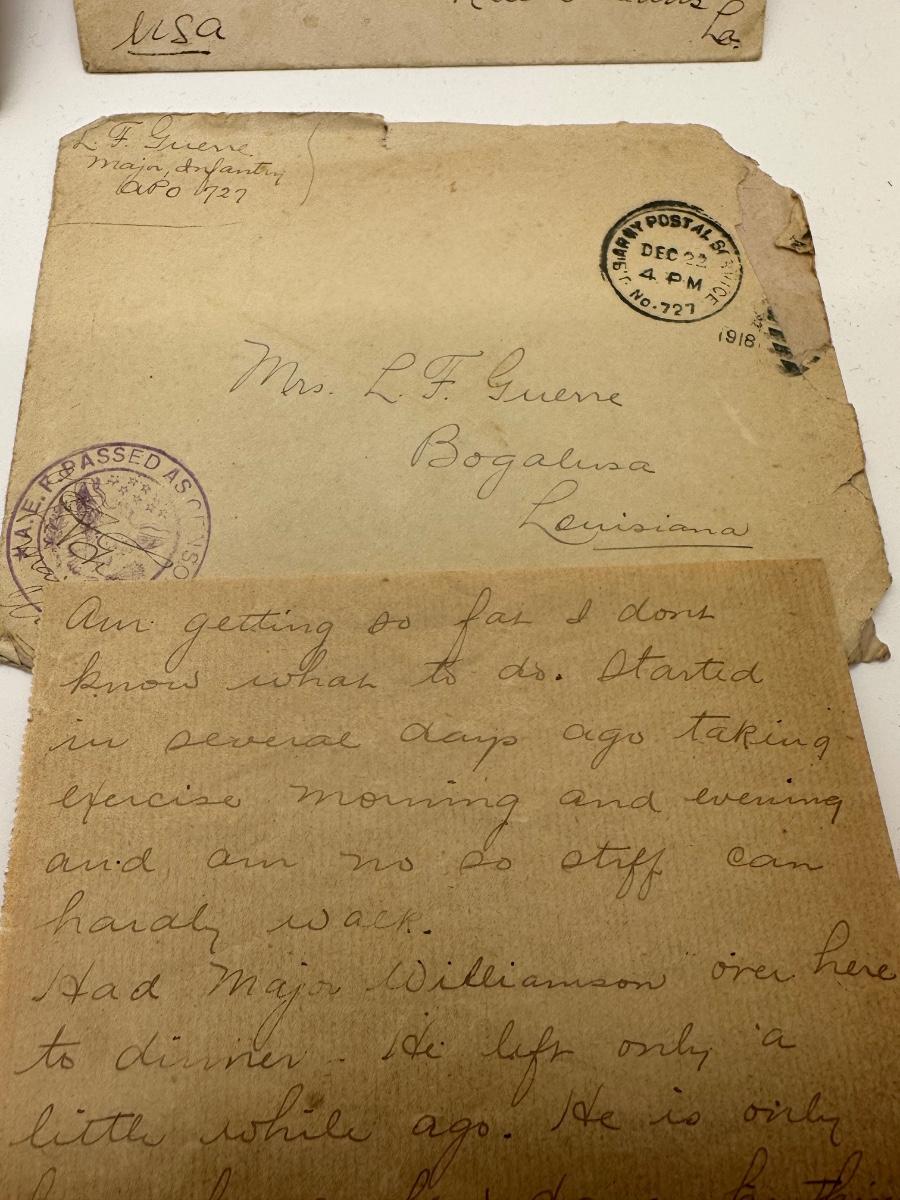 USA
La.
L. F. Guerre
Major, Infantry
APO 727
U.S. ARMY POSTAL SERVICE
DEC 22
4 PM
No. 727
1918
Mrs. L. F. Guerre
Bogalusa
Louisiana
A.E.F. PASSED AS CENSO
Am getting so fat I dont
know what to do. Started
in several days ago taking
exercise morning and evening
and am no so stiff can
hardly walk.
Had Major Williamson over here
to dinner - He left only a
little while ago. He is only